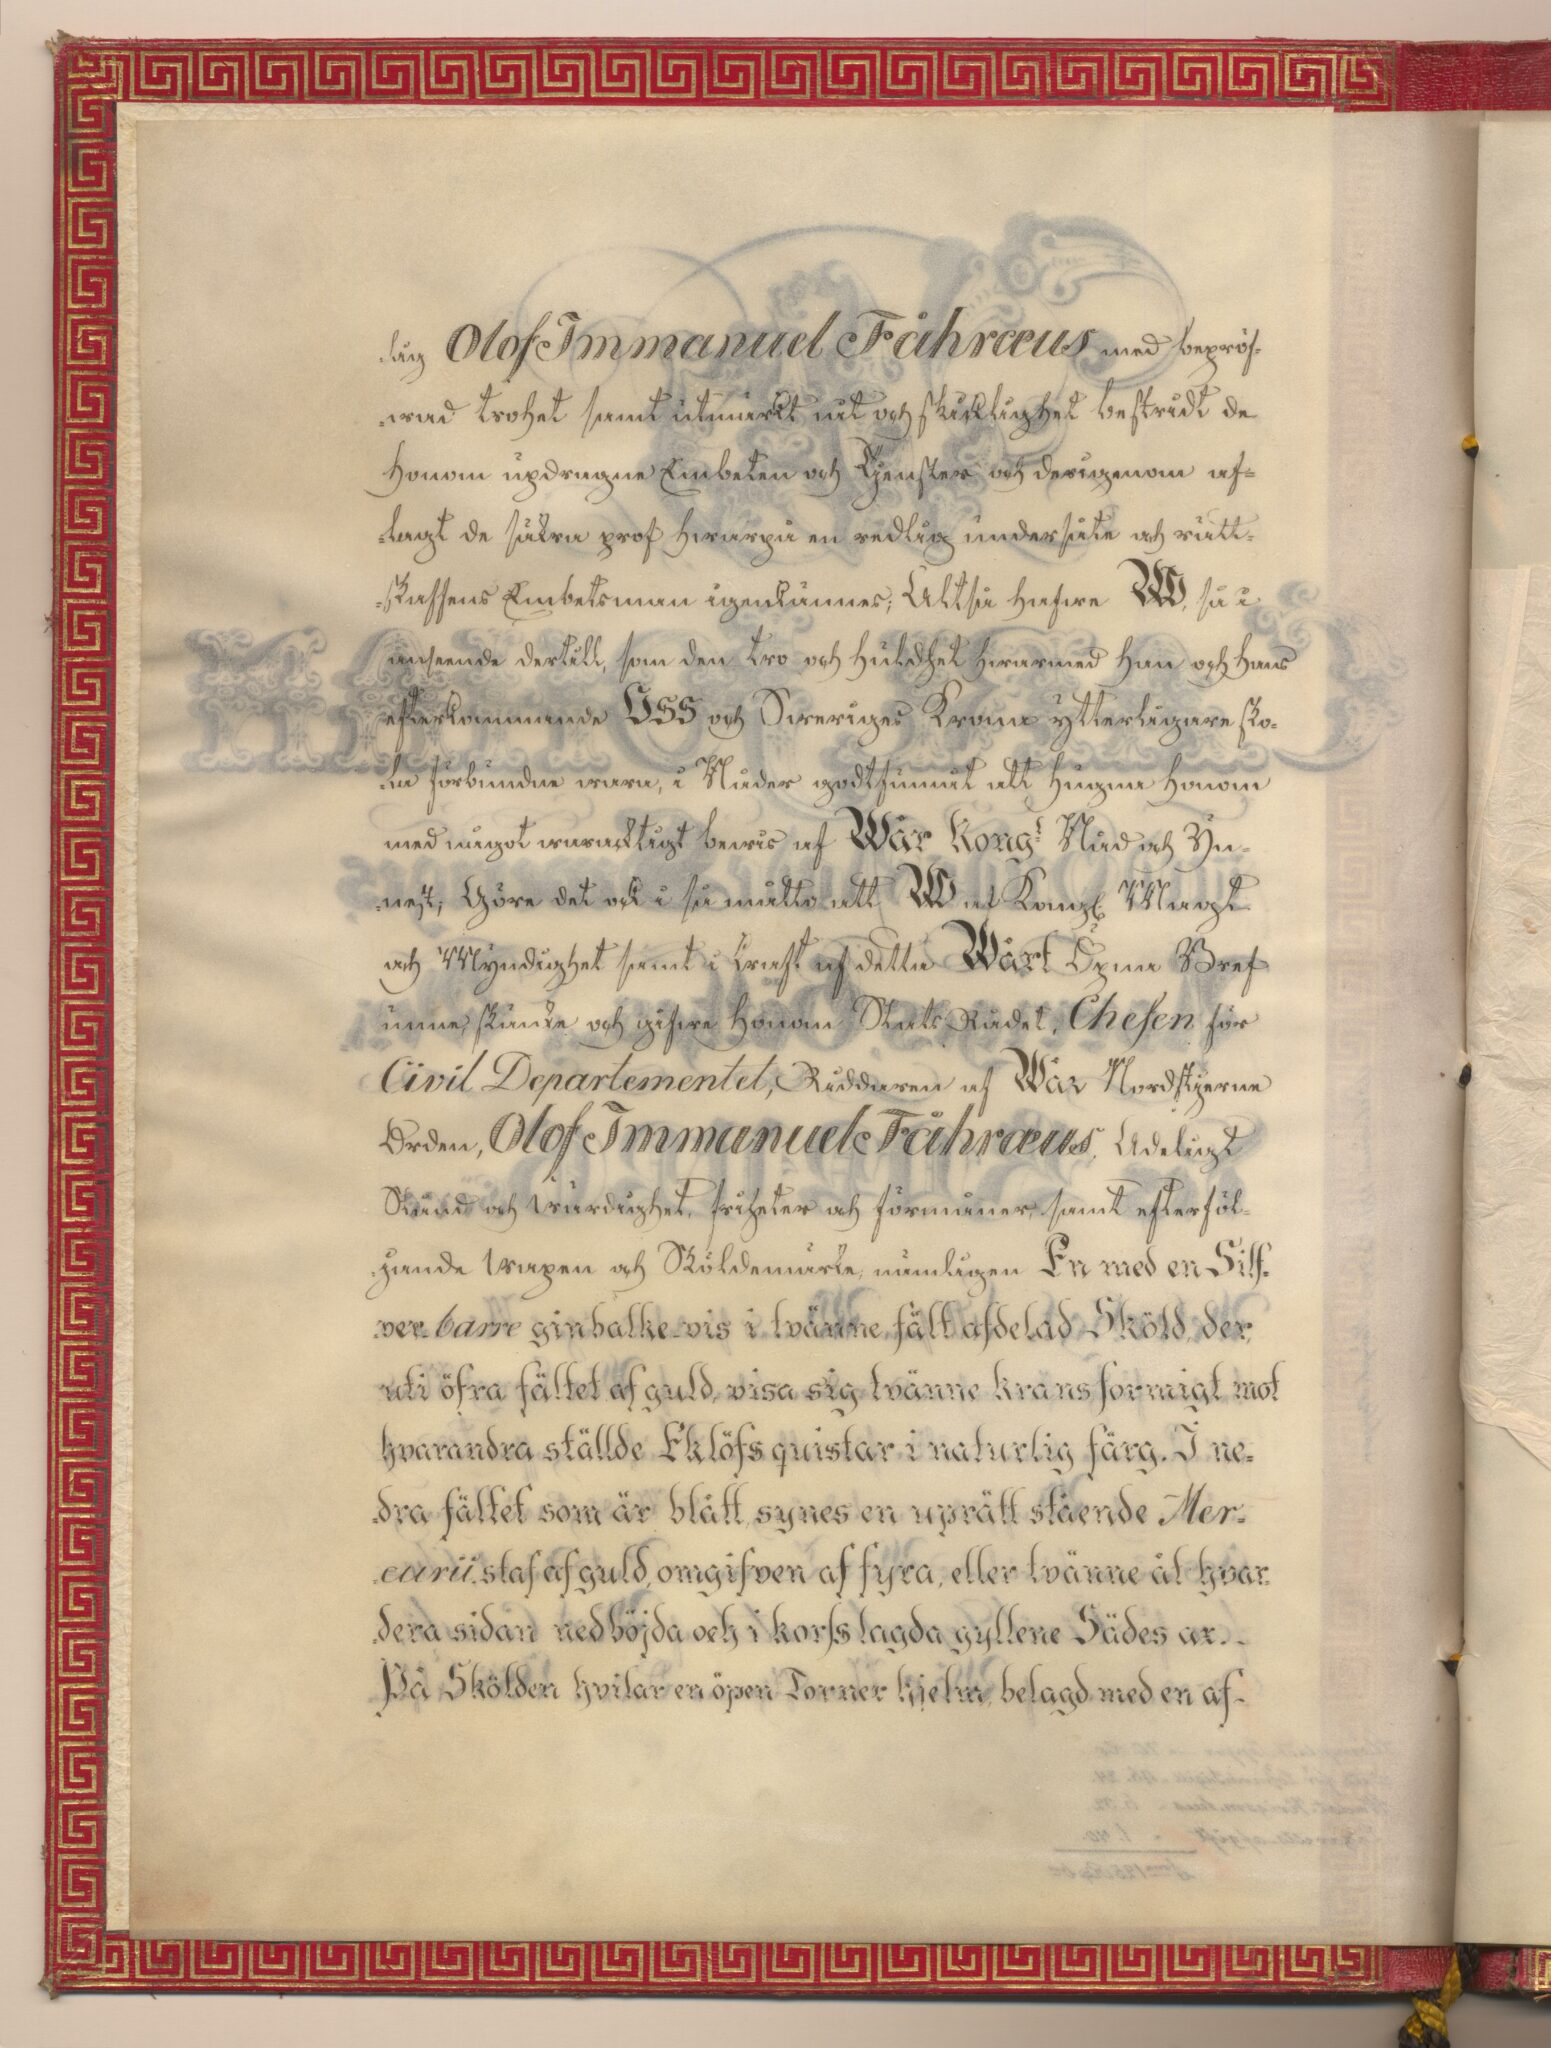 -lig Olof Immanuel Fåhræus med bepröf-
-wad trohet samt utmärkt nit och skicklighet bestridt de
Honom updragne Embeten och Tjenster och derigenom af-
-lagt de säkra prof hwarpå en redlig undersåte och rätt-
-skaffens Embetsman igenkännes; Altså hafwe W, så i
anseende dertill, som den tro och huldhet hwarmed Han och Hans
efterkommande OSS och Sweriges Krona ytterligare sko-
-la förbundne wara, i Nåder godtfunnit att hugna Honom
med något waracktigt bewis af Wår Kongl Nåd och Yn-
-nest; Göre det ock i så måtto att W af Kongl Magt
och Myndighet samt i Craft af detta Wårt Öpna Bref
unne, skänke och gifwe Honom Stats Rådet, Chefen för
Civil Departementet, Riddaren af Wår Nordstjerne
Orden, Olof Immanuel Fåhræus, Adeligt
Stånd och wärdighet, friheter och förmåner, samt efterföl-
-jande wapen och Sköldemärke, nämligen En med en Silf-
-ver barre ginbalke-vis i tvänne fält afdelad Sköld, der
uti öfra fältet af guld, visa sig tvänne kransformigt mot
hvarandra ställde Eklöfsquistar i naturlig färg. I ne-
-dra fältet som är blått, synes en uprätt stående Mer-
-curii staf af guld, omgifven af fyra, eller tvänne åt hvar-
dera sidan nedböjda och i korfs lagda gyllene Sädes ax.
På Skölden hvilar en öpen Torner hjelm, belagd med en af-